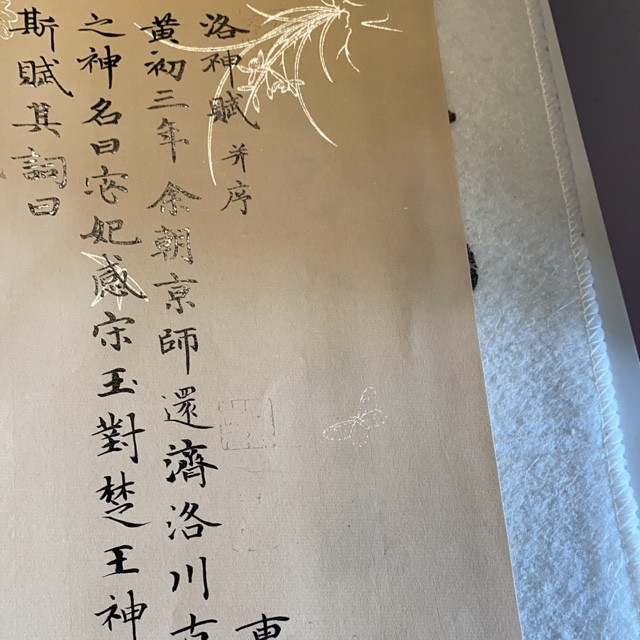 洛神賦 并序
黃初三年余朝京師還濟洛川古
之神名曰宓妃感宋玉對楚王神
斯賦其詞曰